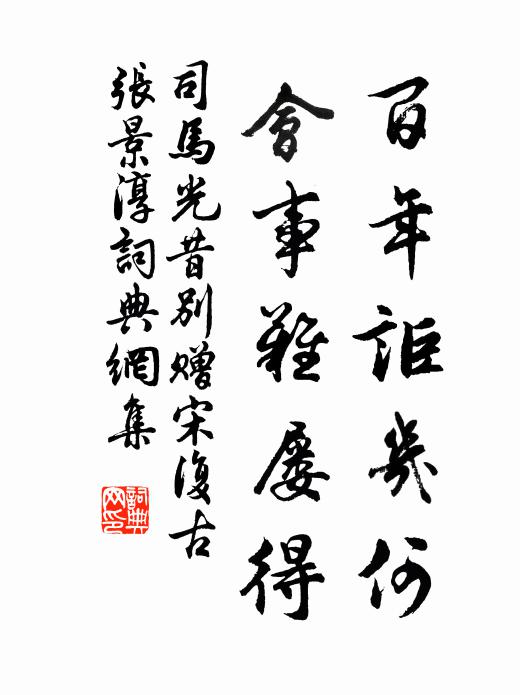 百年詎幾何
會事難屢得
司馬光昔別贈宋復古
張景淳詞典網集
詞典
网印